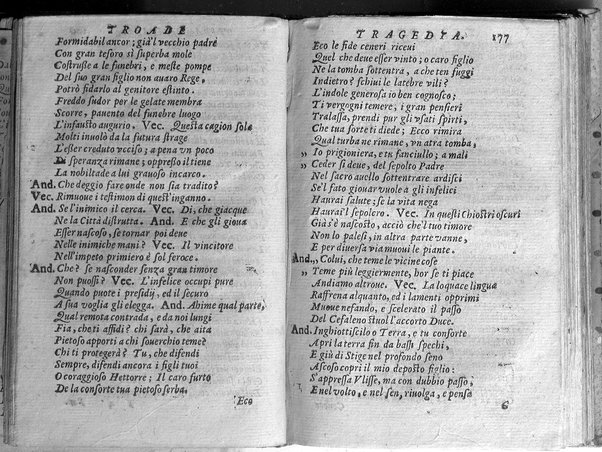 TROADE
Formidabil ancor; già'l vecchio padre
Con gran tesoro sì superba mole
Costrusse a le funebri, e meste pompe
Del suo gran figlio non auaro Rege,
Potrò fidarlo al genitore estinto.
Freddo sudor per le gelate membra
Scorre, pauento del funebre luogo
L'infausto augurio. Vec. Questa cagion sola
Molti inuolò da la futura strage
L'esser creduto vcciso; a pena vn poco
Di speranza rimane; oppresso il tiene
La nobiltade a lui grauoso incarco.
And. Che deggio fare onde non sia tradito?
Vec. Rimuoue i testimon di quest'inganno.
And. Se'l inimico il cerca. Vec. Di, che giacque
Ne la Città distrutta. And. E che gli gioua
Esser nascoso, se tornar poi deue
Nelle inimiche mani? Vec. Il vincitore
Nell'impeto primiero è sol feroce.
And. Che? se nasconder senza gran timore
Non puossi? Vec. L'infelice occupi pure
Quando puote i presidij, ed il securo
A sua voglia gli elegga. And. Ahime qual parte,
Qual remota contrada, e da noi lungi
Fia, che ti affidi? chi sarà, che aita
Pietoso apporti a chi souerchio teme?
Chi ti protegerà? Tu, che difendi
Sempre, difendi ancora i figli tuoi
O coraggioso Hettorre; Il caro furto
De la consorte tua pietoso serba.
Ecco
TRAGEDIA. 177
Eco le fide ceneri riceui
Quel che deue esser vinto; o caro figlio
Ne la tomba sottentra, a che ten fuggi
Indietro? schiui le latebre vili?
L'indole generosa io ben cognosco;
Ti vergogni temere; i gran pensieri
Tralassa, prendi pur gli vsati spirti,
Che tua sorte ti diede; Ecco rimira
Qual turba ne rimane, vn atra tomba,
" Io prigioniera, e tu fanciullo; a mali
" Ceder si deue, del sepolto Padre
Nel sacro auello sottentrare ardisci
Se'l fato giouar vuole a gli infelici
Haurai salute; se la vita nega
Haurai'l sepolcro. Vec. In questi Chiostri oscuri
Già s'è nascosto, acciò che'l tuo timore
Non lo palesi, in altra parte vanne,
E per diuersa via muoui le piante.
And. " Colui, che teme le vicine cose
" Teme più leggiermente, hor se ti piace
Andiamo altroue. Vec. La loquace lingua
Raffrena alquanto, ed i lamenti opprimi
Muoue nefando, e scelerato il passo
Del Cefaleno stuol l'accorto Duce.
And. Inghiottiscilo o Terra, e tu consorte
Apri la terra fin da bassi spechi,
E giù di Stige nel profondo seno
Ascoso copri il mio deposto figlio:
S'appressa Vlisse, ma con dubbio passo,
E nel volto, e nel sen, riuolga, e pensa
G